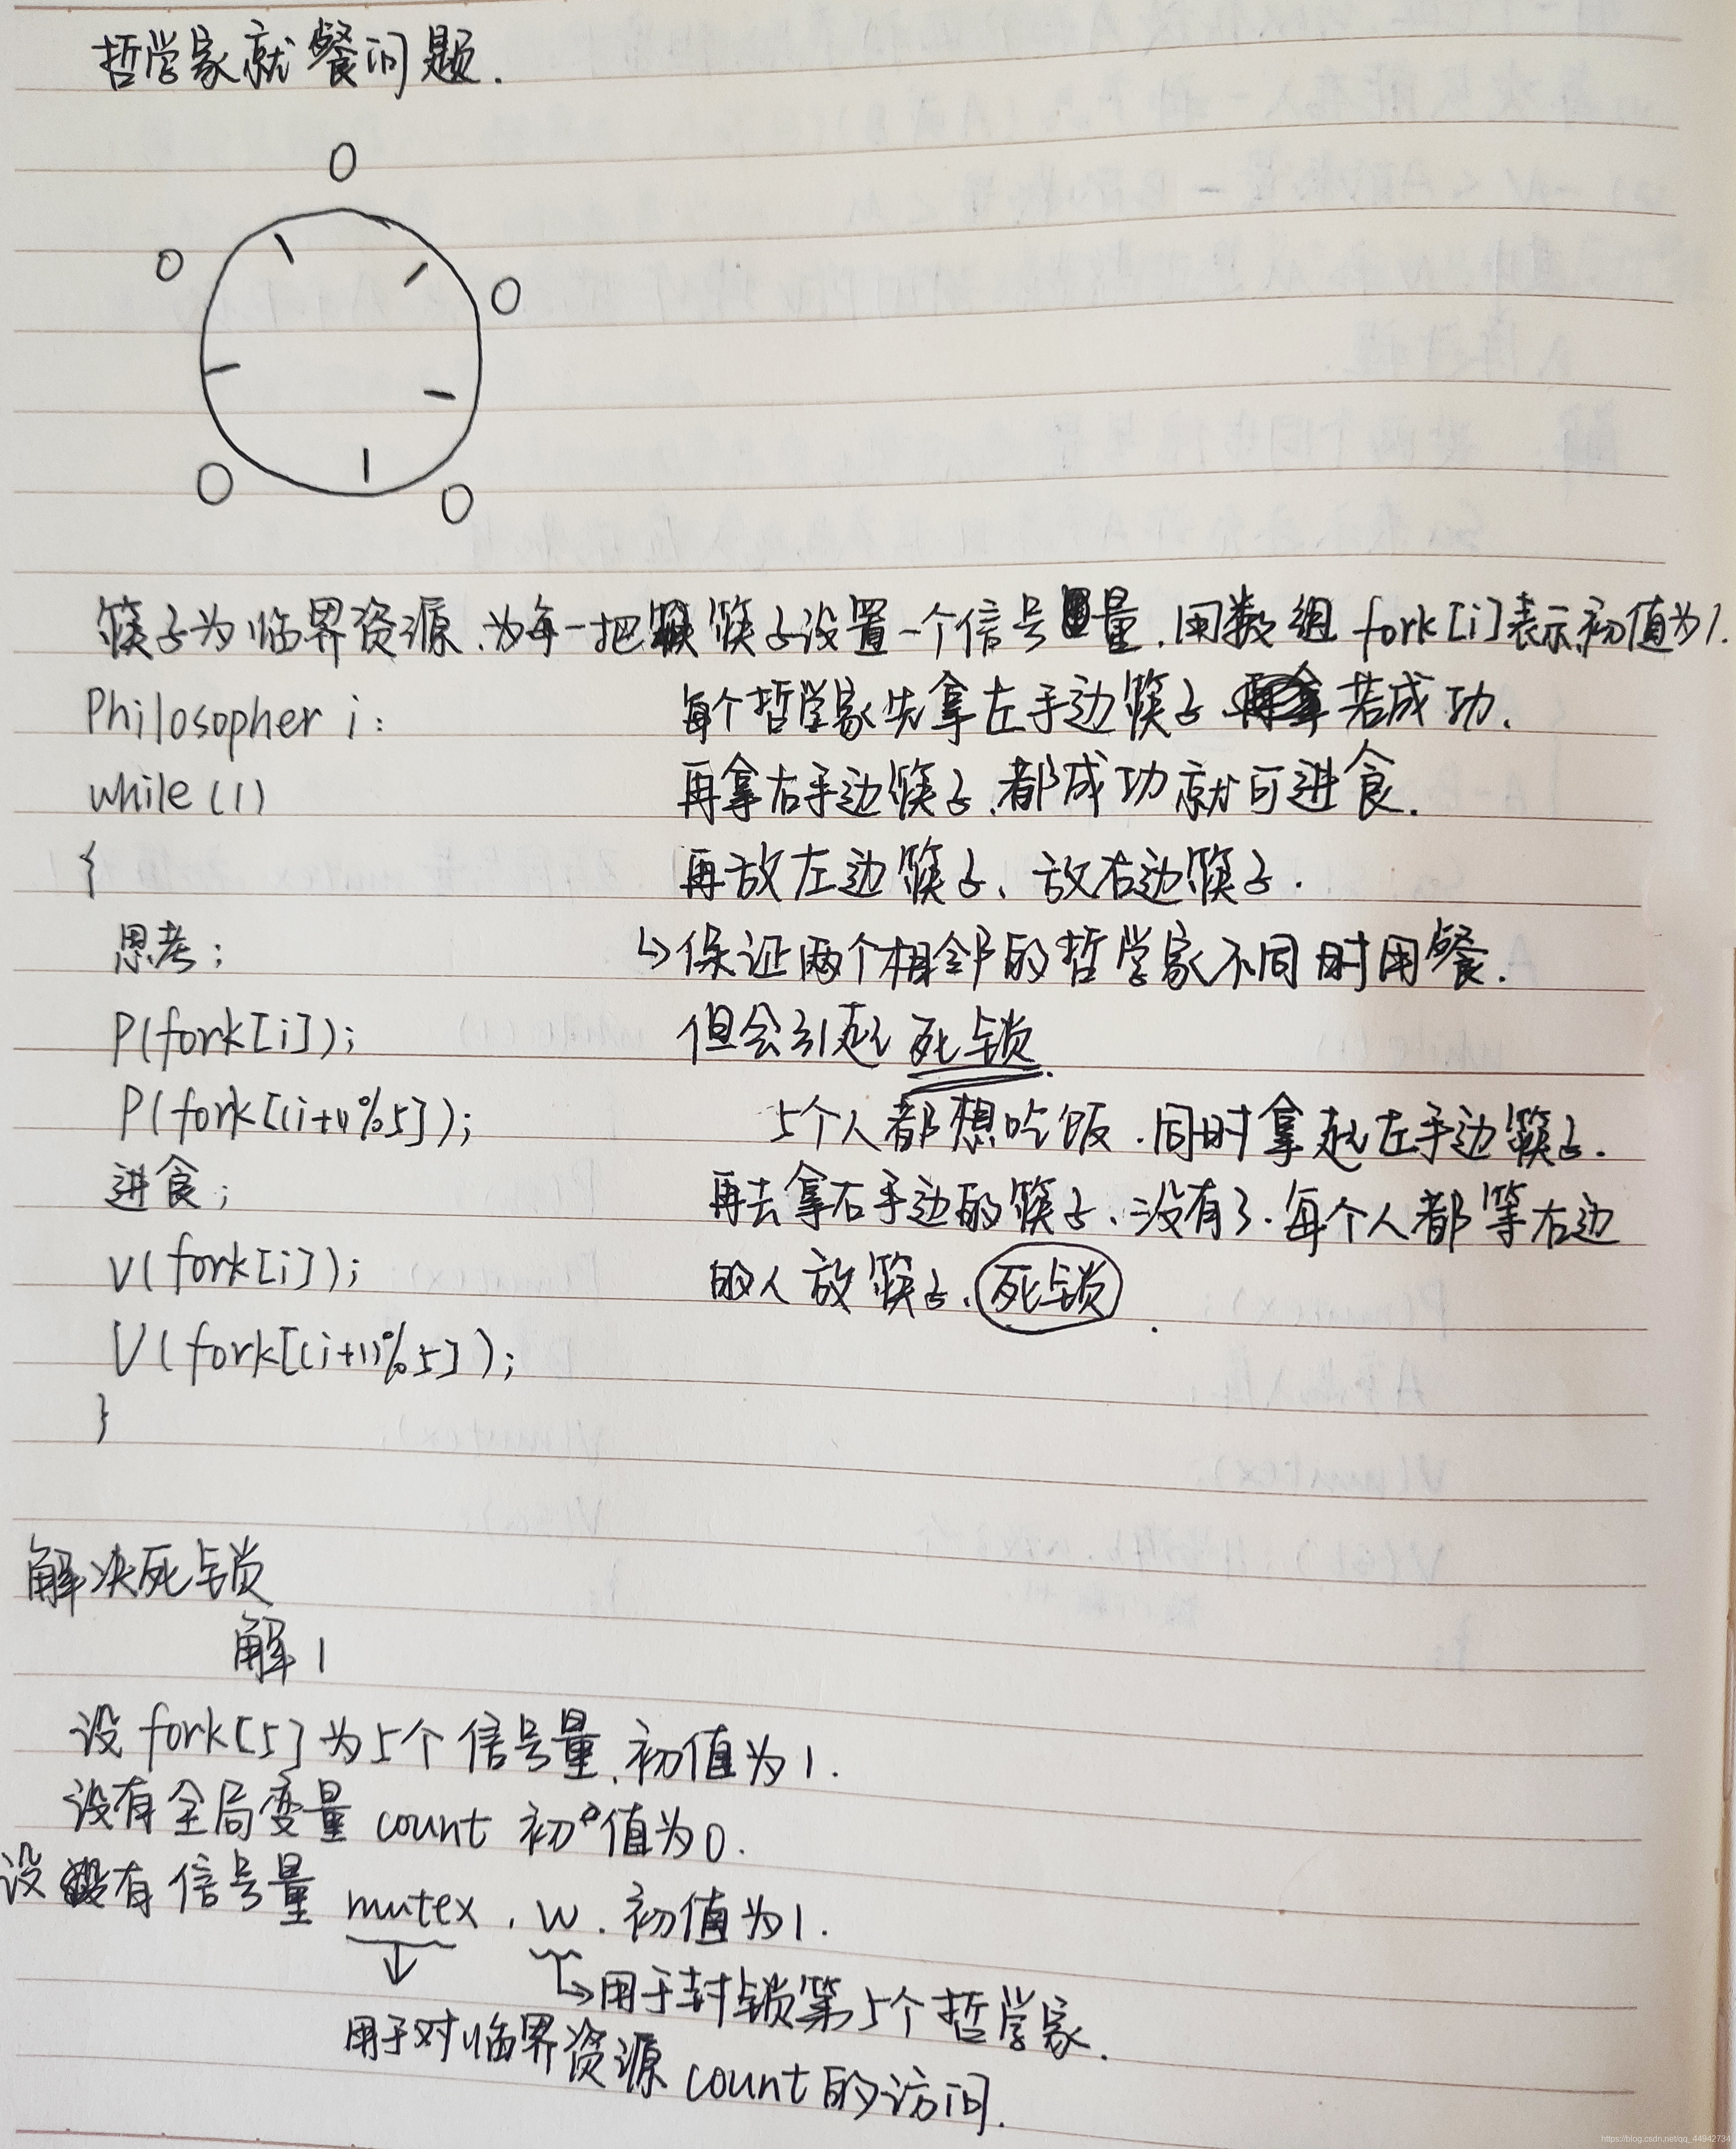 哲学家就餐问题.
筷子为临界资源.为每一把筷子设置一个信号量.用数组 fork[i]表示初值为1.
Philosopher i:
while(1)
{
思考;
P(fork[i]);
P(fork[(i+1)%5]);
进食;
V(fork[i]);
V(fork[(i+1)%5]);
}
每个哲学家先拿左手边筷子 若成功.
再拿右手边筷子.都成功就可进食.
再放左边筷子、放右边筷子.
↳保证两个相邻的哲学家不同时用餐.
但会引起死锁.
5个人都想吃饭.同时拿起左手边筷子.
再去拿右手边的筷子、没有了.每个人都等右边
的人放筷子、死锁.
解决死锁
解1
设 fork[5] 为5个信号量.初值为1.
设有全局变量 count 初值为0.
设有信号量 mutex, w. 初值为1.
↳用于封锁第5个哲学家.
用于对临界资源 count的访问.
https://blog.csdn.net/qq_44942734